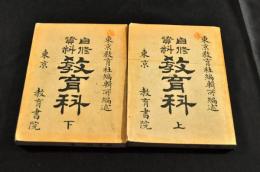 東京教育社編輯所編述
自修
資料
教育科
上
東京
教育書院
東京教育社編輯所編述
自修
資料
教育科
下
東京
教育書院